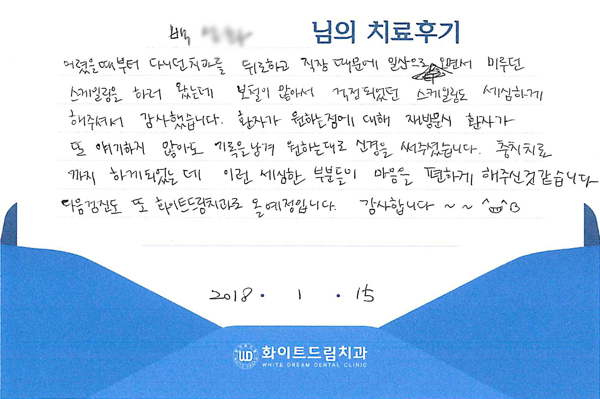 백 님의 치료후기
어렸을때부터 다니던 치과를 뒤로하고 직장 때문에 일산으로 오면서 미루던
스케일링을 하러 왔는데 보철이 많아서 걱정되었던 스케일링도 세심하게
해주셔서 감사했습니다. 환자가 원하는점에 대해 재방문시 환자가
또 얘기하지 않아도 기록을 남겨 원하는대로 신경을 써주셨습니다. 충치치료
까지 하게되었는데 이런 세심한 부분들이 마음을 편하게 해주신것같습니다
다음검진도 또 화이트드림치과로 올 예정입니다. 감사합니다 ~ ~
2018 · 1 · 15
WD 화이트드림치과
WHITE DREAM DENTAL CLINIC